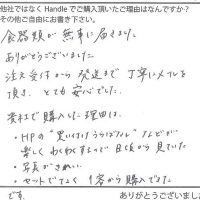 他社ではなくHandleでご購入頂いたご理由はなんですか?
その他ご自由にお書き下さい。
食器類が無事に届きました
ありがとうございました
注文受付から発送まで丁寧にメールを
頂き、とても安心でした。
貴社で購入した理由は、
・HPの"買いだしうらばなし"などが
楽しくわくわくするので日頃から見ていた
・写真がきれい
・セットでなく1客から購入できた
です。
ありがとうございまし